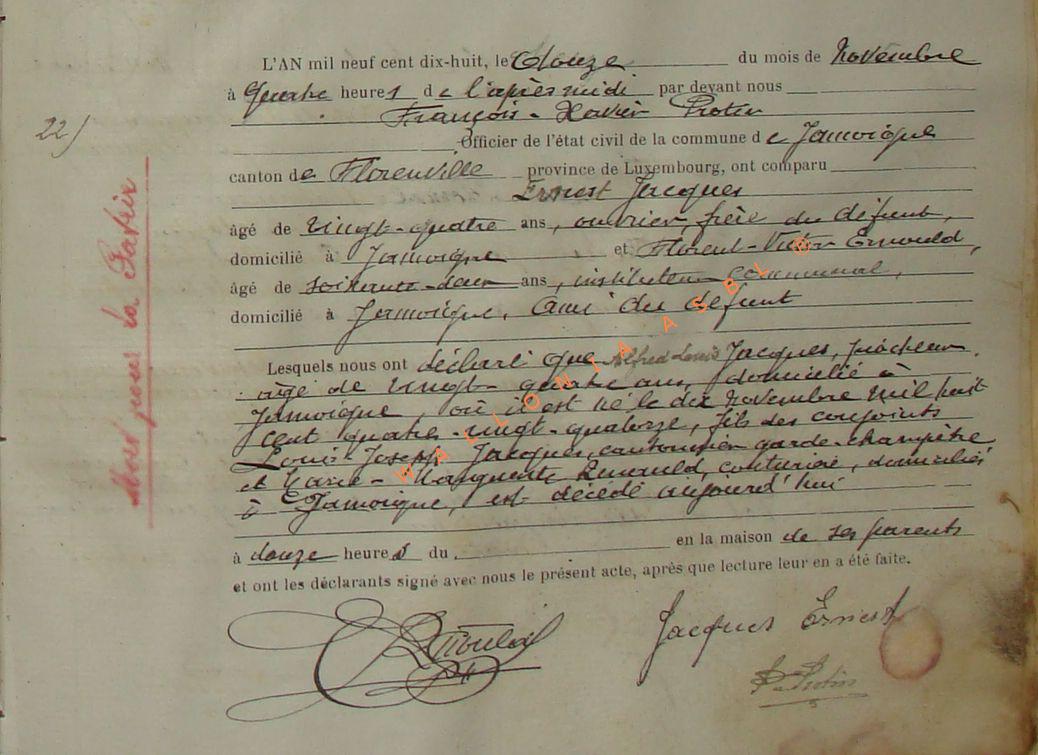 L'AN mil neuf cent dix-huit, le douze du mois de Novembre
à quatre heures de l'après midi par devant nous
François-Xavier Protin
22)
Officier de l'état civil de la commune de Jamoigne
canton de Florenville province de Luxembourg, ont comparu
Ernest Jacques
âgé de vingt-quatre ans, ouvrier, frère du défunt,
domicilié à Jamoigne et Florent-Victor Ernould,
âgé de soixante-deux ans, instituteur communal,
domicilié à Jamoigne, ami du défunt
Lesquels nous ont déclaré que Alfred Louis Jacques, piocheur,
âgé de vingt-quatre ans, domicilié à
Jamoigne, où il est né le dix Novembre mil huit
cent quatre-vingt-quatorze, fils des conjoints
Louis-Joseph Jacques, cantonnier garde-champêtre
et Marie-Marguerite couturière, domiciliés
à Jamoigne, est décédé aujourd'hui
à douze heures du en la maison de ses parents
et ont les déclarants signé avec nous le présent acte, après que lecture leur en a été faite.
Ernould
Jacques Ernest
Protin
Mort pour la Patrie
WALONIA ASBL ©